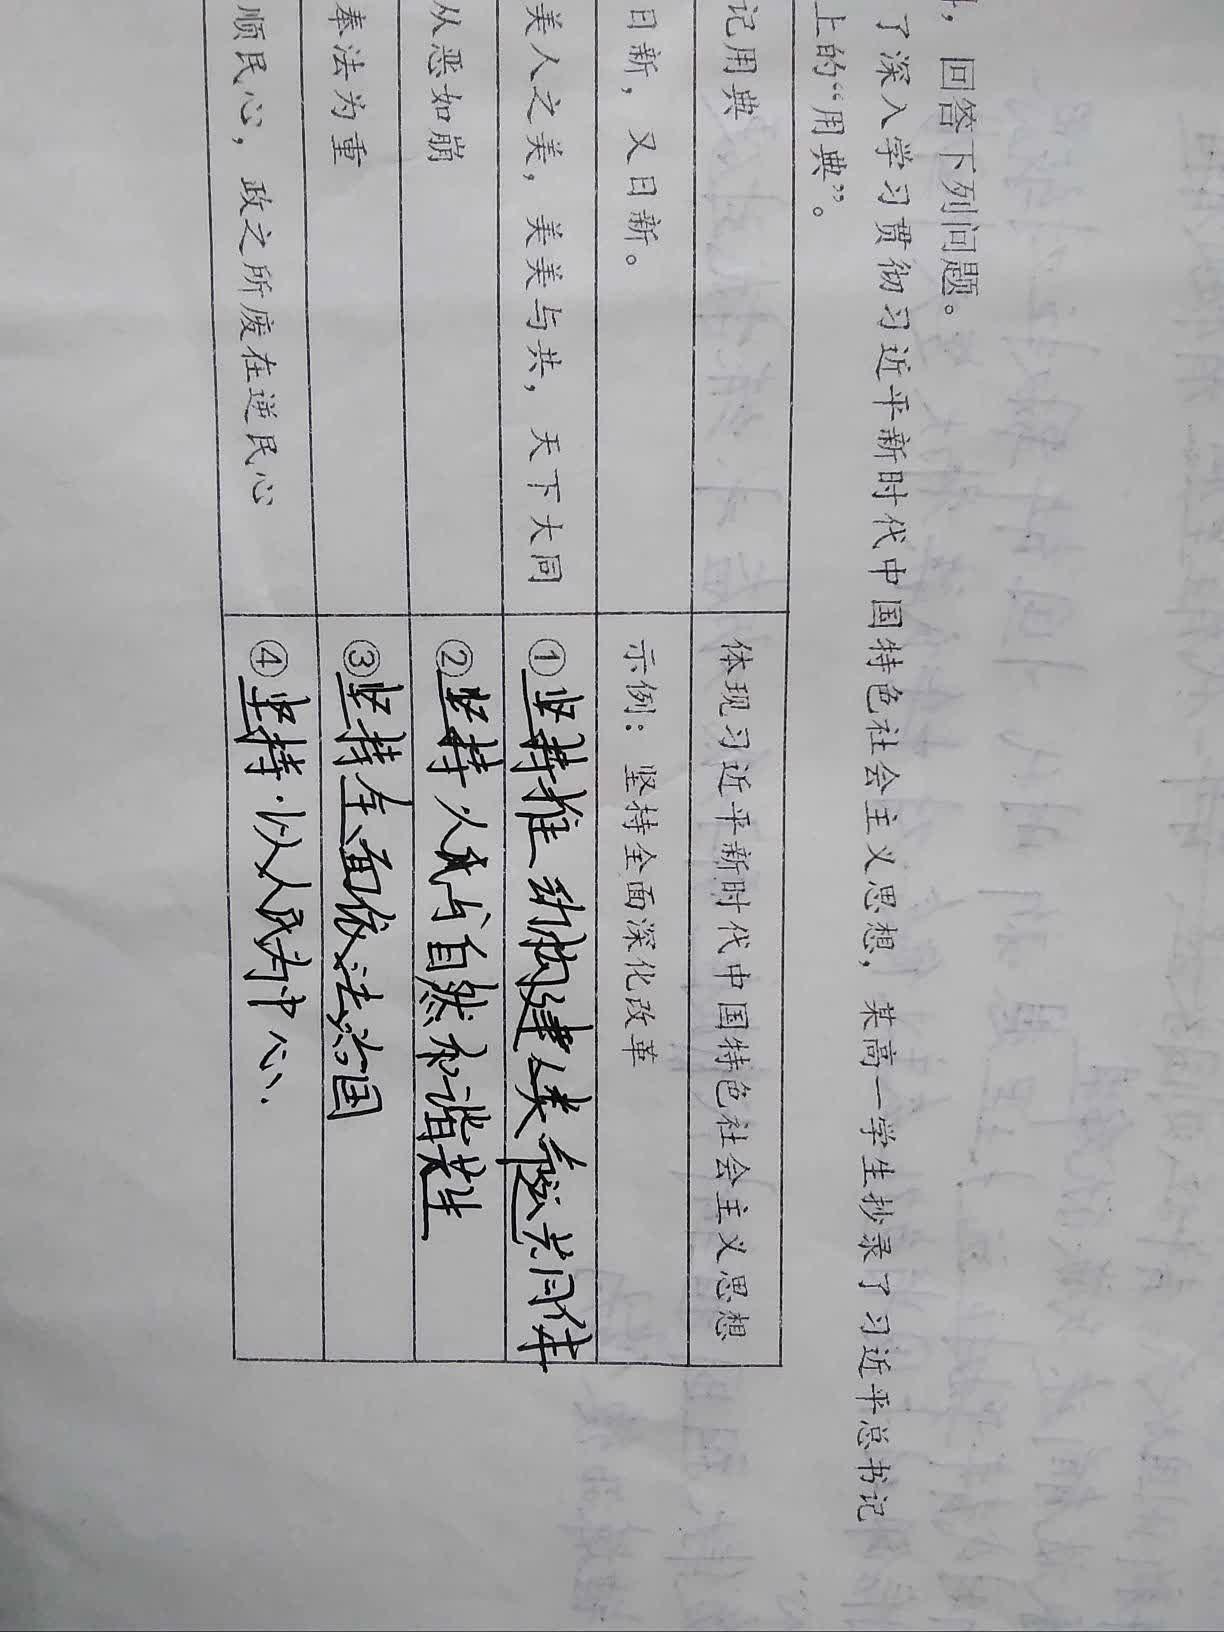 ，回答下列问题。
了深入学习贯彻习近平新时代中国特色社会主义思想，某高一学生抄录了习近平总书记
上的“用典”。
记用典 体现习近平新时代中国特色社会主义思想
日新，又日新。 示例：坚持全面深化改革
美人之美，美美与共，天下大同 ①坚持推动构建人类命运共同体
从恶如崩 ②坚持人民与自然和谐共生
奉法为重 ③坚持全面依法治国
顺民心，政之所废在逆民心 ④坚持·以人民为中心.